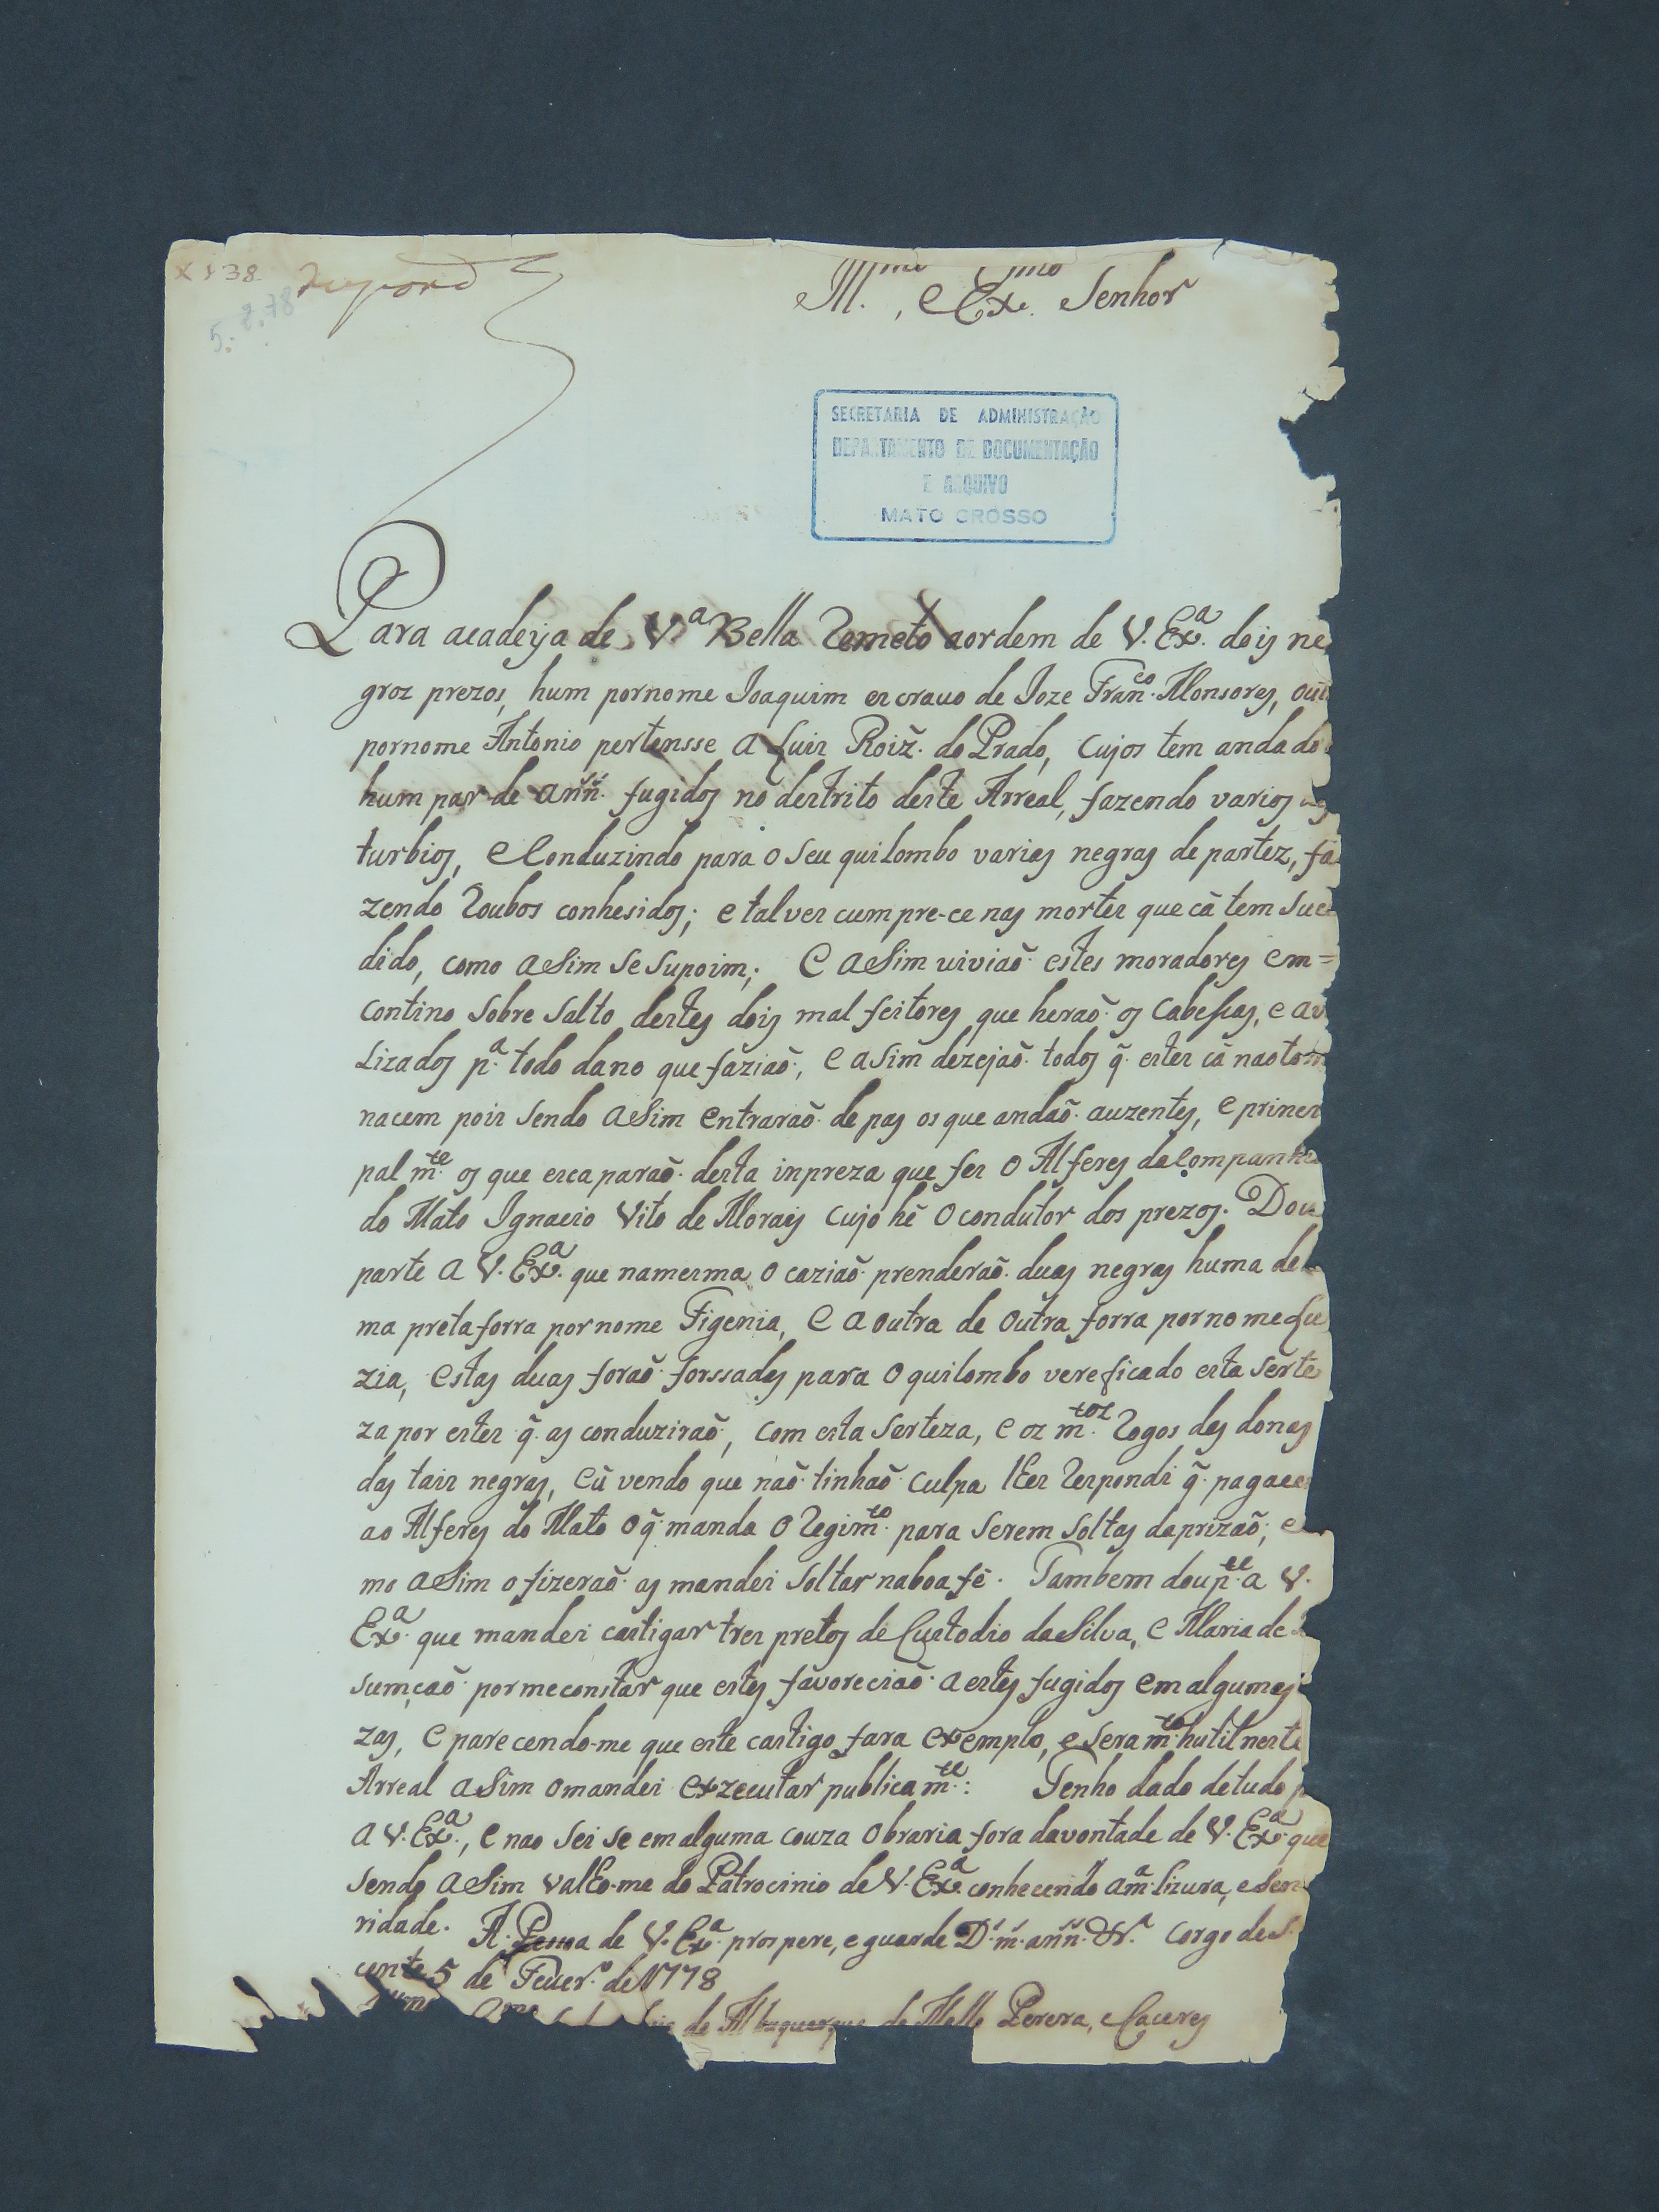 X 138
5.2.78
Respond.ª
Ill.mo, e Ex.mo Senhor
SECRETARIA DE ADMINISTRAÇÃO
DEPARTAMENTO DE DOCUMENTAÇÃO
E ARQUIVO
MATO GROSSO
Para acadeya de V.ª Bella Remeto aordem de V. Ex.ª dois ne
groz prezos, hum pornome Joaquim escrauo de Joze Fran.co Monsores, out
pornome Antonio pertensse a Luis Roiz̃. do Prado, Cujos tem andado
hum par de ann.s fugidos no destrito deste Arreal, fazendo varios
turbios, e Conduzindo para o Seu quilombo varias negras de partez, fa
zendo Roubos conhesidos; e talves cumpre-ce nas mortes que cá tem Suce
dido, como aSim Se Supoim; E aSim uiviaõ estes moradores em=
contino Sobre Salto destes dois mal feitores que heraõ os Cabeſſas, e av
Lizados p.ª todo dano que faziaõ, e aSim dezejaõ todos q̃. estes cá nao tor
nacem pois Sendo aSim entraraõ de pas os que andaõ auzentes, e princi
pal m.te os que escaparaõ desta inpreza que fes o Alferes da Companhi
do Mato Ignacio Vito de Morais Cujo hé o condutor dos prezos. Dou
parte a V. Ex.ª que namesma o caziaõ prenderaõ duas negras huma de
ma preta forra por nome Figenia, e a outra de outra forra por nome Lu
zia, estas duas foraõ forssadas para o quilombo vereficado esta Serte
za por estes q̃. as conduziraõ, com esta Serteza, e os m.tos Rogos das donas
das tais negras, eû vendo que naõ tinhaõ Culpa lhes Respondi q̃. pagace
ao Alferes do Mato oq̃. manda o Regim.to para Serem Soltas daprizaõ;
mo aSim o fizeraõ as mandei Soltar naboa fé. Tambem dou p.te a V.
Ex.ª que mandei castigar tres pretos de Custodio da Silva, e Maria de
sumçaõ por meconstar que estes favoreciaõ a estes fugidos em algumas
zas, e parecendo-me que este castigo fara exemplo, e Sera m.to hutil neste
Arreal aSim omandei exzecutar publicam.te: Tenho dado detudo p
a V. Ex.ª, e nao Sei Se em alguma couza obraria fora davontade de V. Ex.ª que
Sendo aSim valho-me do Patrocinio de V. Ex.ª conhecendo a m.ª lizura, e Sen
ridade. A Pessoa de V. Ex.ª prospere, e guarde D.s m.s ann.s &.ª Corgo de S.
cente 5 de Feuer.º de 1778
de Albuquerque de Mello Perera, e Caceres